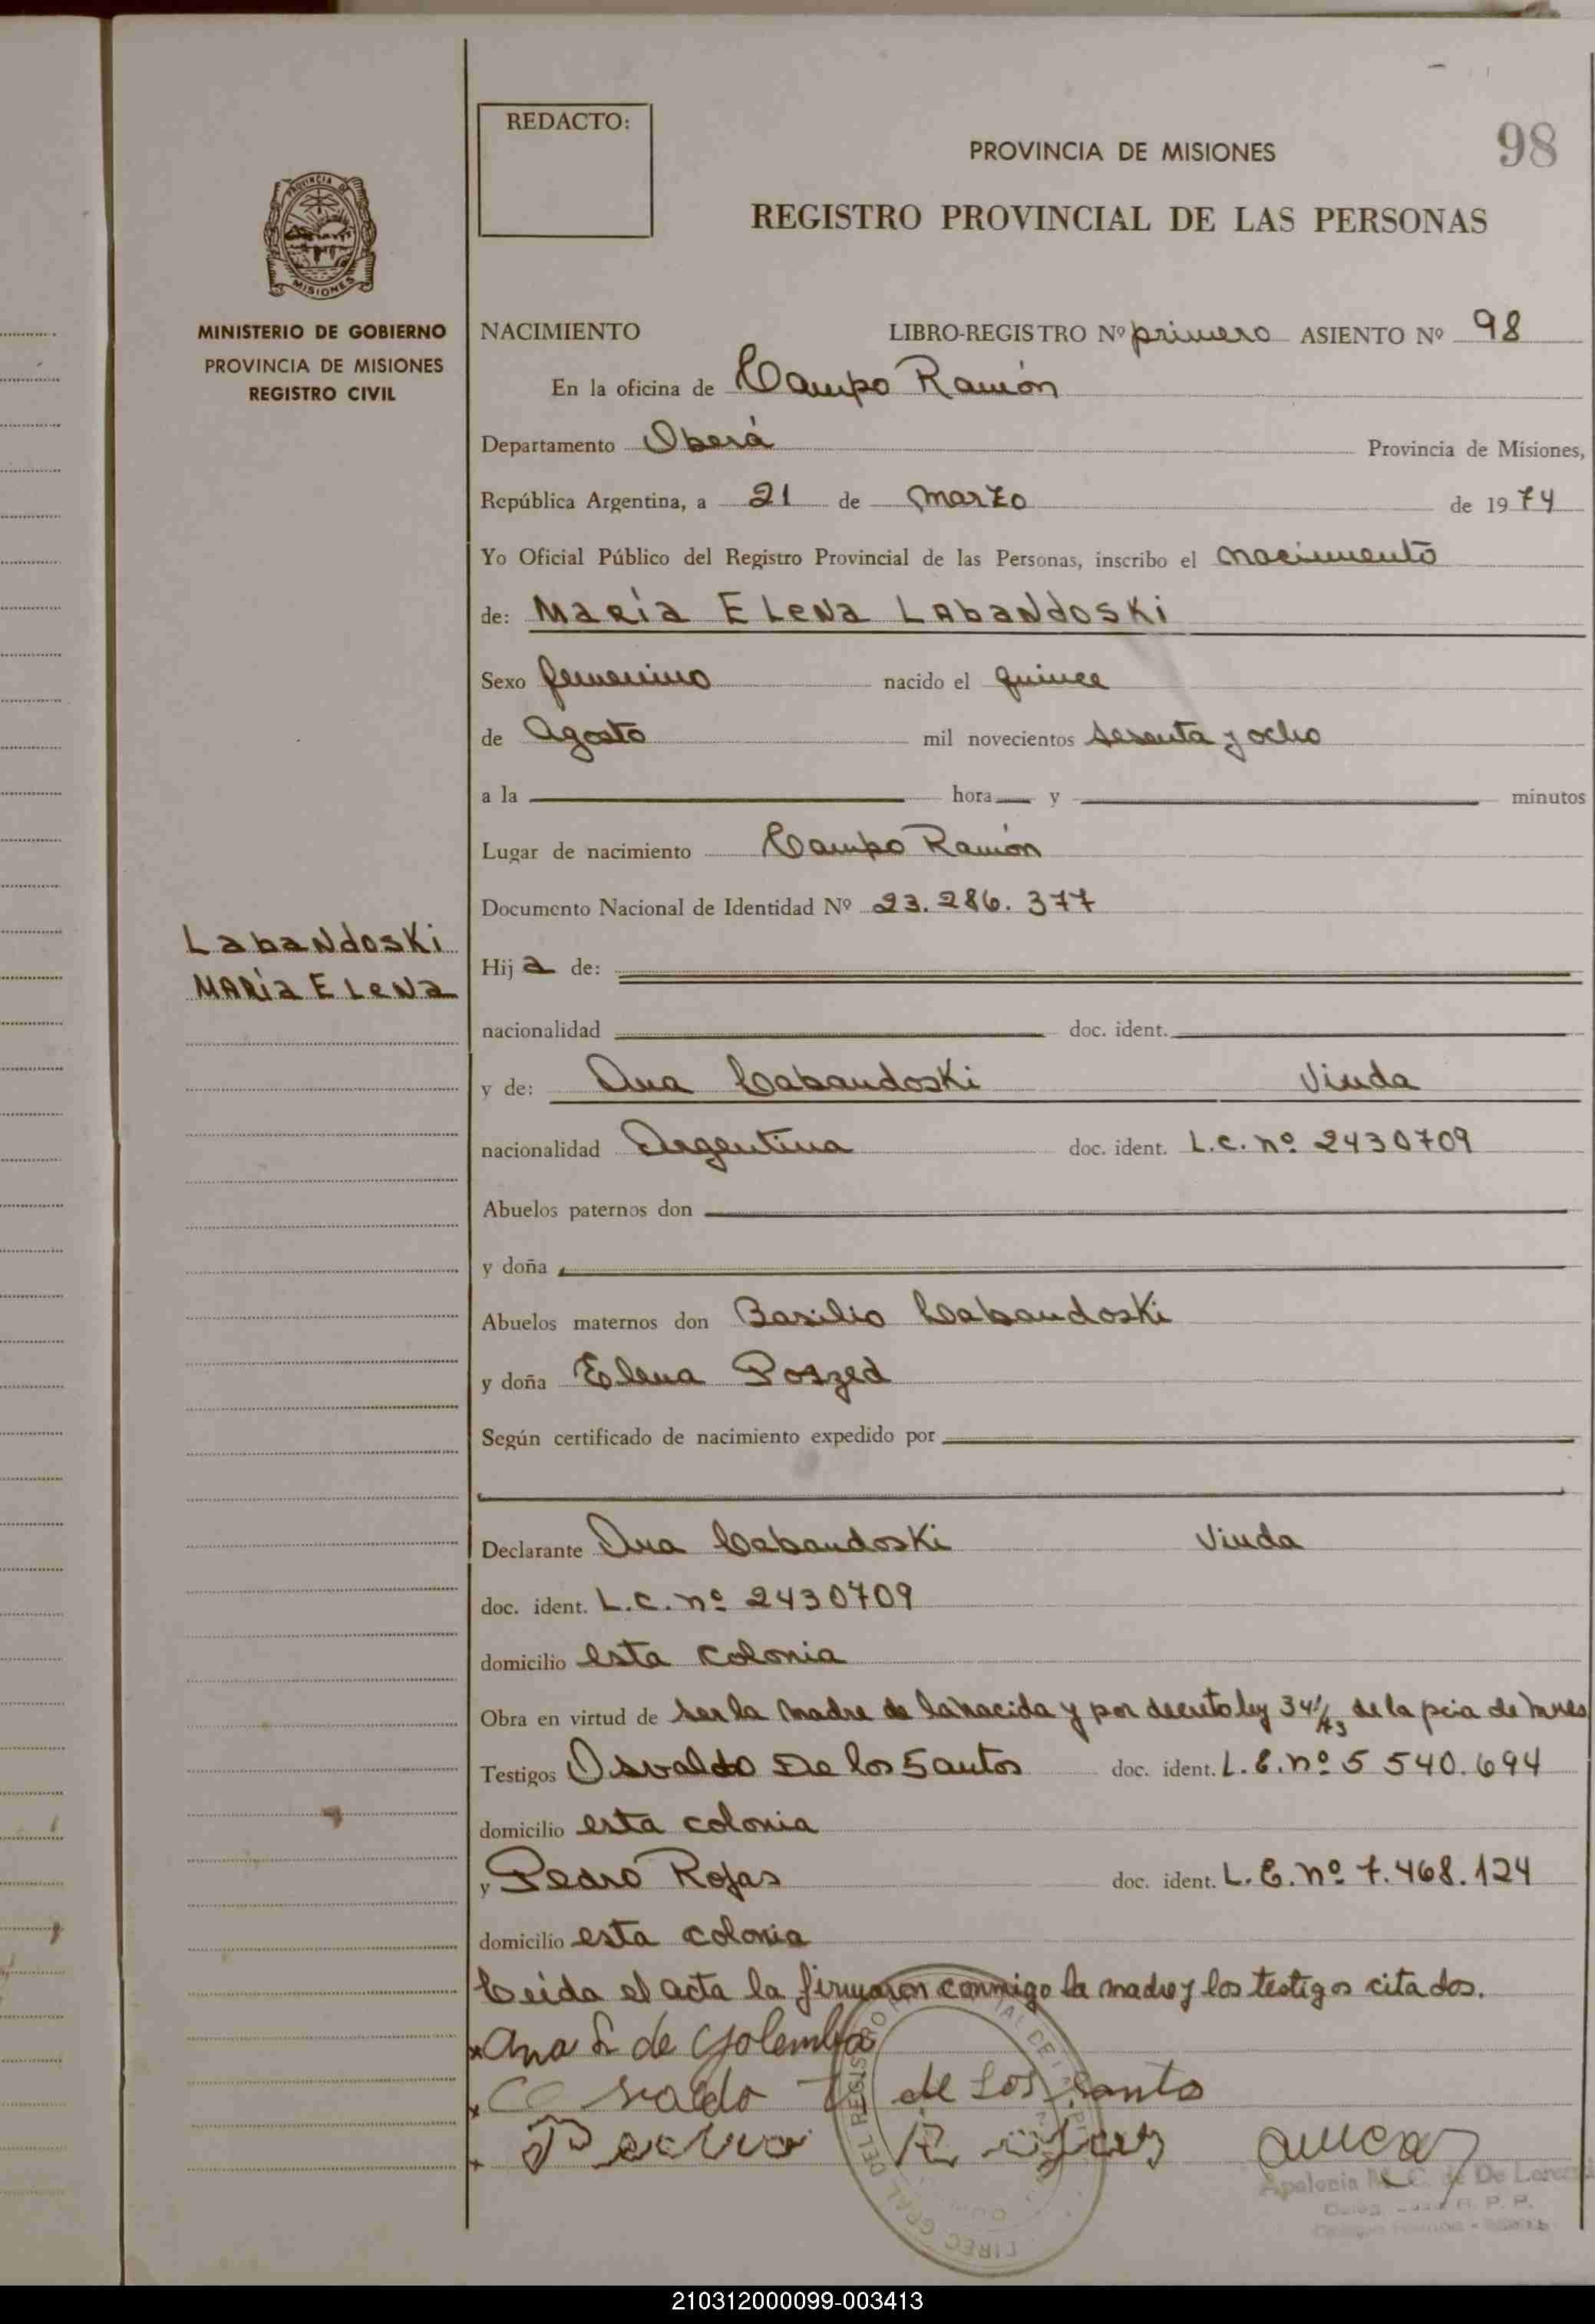 REDACTO:
PROVINCIA DE MISIONES
98
REGISTRO PROVINCIAL DE LAS PERSONAS
PROVINCIA DE
MISIONES
MINISTERIO DE GOBIERNO
PROVINCIA DE MISIONES
REGISTRO CIVIL
NACIMIENTO LIBRO-REGISTRO Nº primero ASIENTO Nº 98
En la oficina de Campo Ramón
Departamento Oberá Provincia de Misiones,
República Argentina, a 21 de Marzo de 1974
Yo Oficial Público del Registro Provincial de las Personas, inscribo el nacimiento
de: María Elena Labandoski
Sexo femenino nacido el quince
de Agosto mil novecientos sesenta y ocho
a la hora y minutos
Lugar de nacimiento Campo Ramón
Documento Nacional de Identidad Nº 23.286.377
Labandoski
María Elena
Hija de:
nacionalidad doc. ident.
y de: Ana Labandoski Viuda
nacionalidad Argentina doc. ident. L.C. nº 2430709
Abuelos paternos don
y doña
Abuelos maternos don Basilio Labandoski
y doña Elena Poszed
Según certificado de nacimiento expedido por
Declarante Ana Labandoski Viuda
doc. ident. L.C. nº 2430709
domicilio esta colonia
Obra en virtud de ser la madre de la nacida y por decreto ley 341/73 de la pcia de Mnes
Testigos Osvaldo De los Santos doc. ident. L.E. nº 5 540.694
domicilio esta colonia
y Pedro Rojas doc. ident. L.E. nº 7.468.124
domicilio esta colonia
Leida el acta la firmaron conmigo la madre y los testigos citados.
Ana L de Golemba
Osvaldo de los santo
Pedro Rojas
Apolonia M. C. de De Loren
210312000099-003413